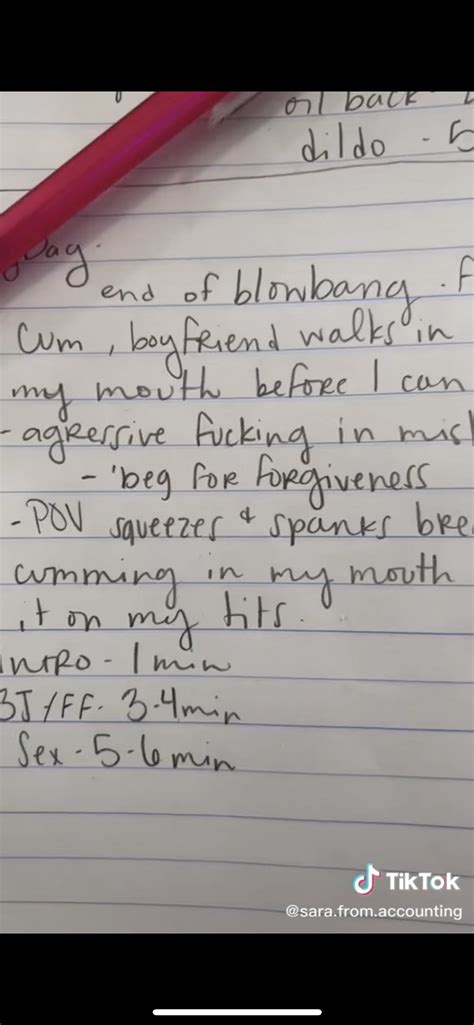 oil back
dildo - 5
Day.
end of blowbang.
Cum, boyfriend walks in
my mouth before I can
- agressive fucking in
- 'beg for forgiveness
- POV squeezes & spanks
cumming in my mouth
it on my tits.
INTRO - 1 min
BJ/FF. 3-4min
Sex - 5-6 min
TikTok
@sara.from.accounting